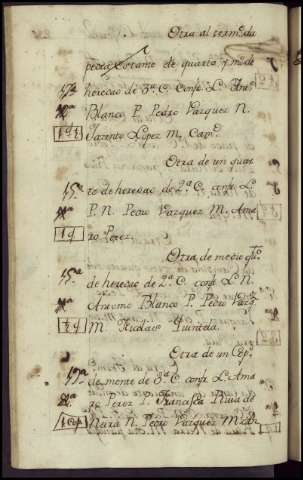 Otra al term.º du
pedra Estamo de quarto y m.º de
heredad de 3.ª C. Conf. L. Ant.º
Blanco P. Pedro Vazquez N.
Jazinto Lopez M. Cap.ⁿ
Otra de un quar
15.ª to de heredad de 2.ª C. conf. L.
P. N. Pedro Vazquez M. Ama
1 q ro Perez.
Otra de medio q.to
15.ª de heredad de 2.ª C. conf. L. N.
Antonio Blanco P. Pedro Vazq.z
M. Nicolas Quintela.
Otra de un Cep.
de monte de 3.ª C. conf. L. Ama
ro Perez P. Francisca Ruia de
N. Pedro Vazquez M.